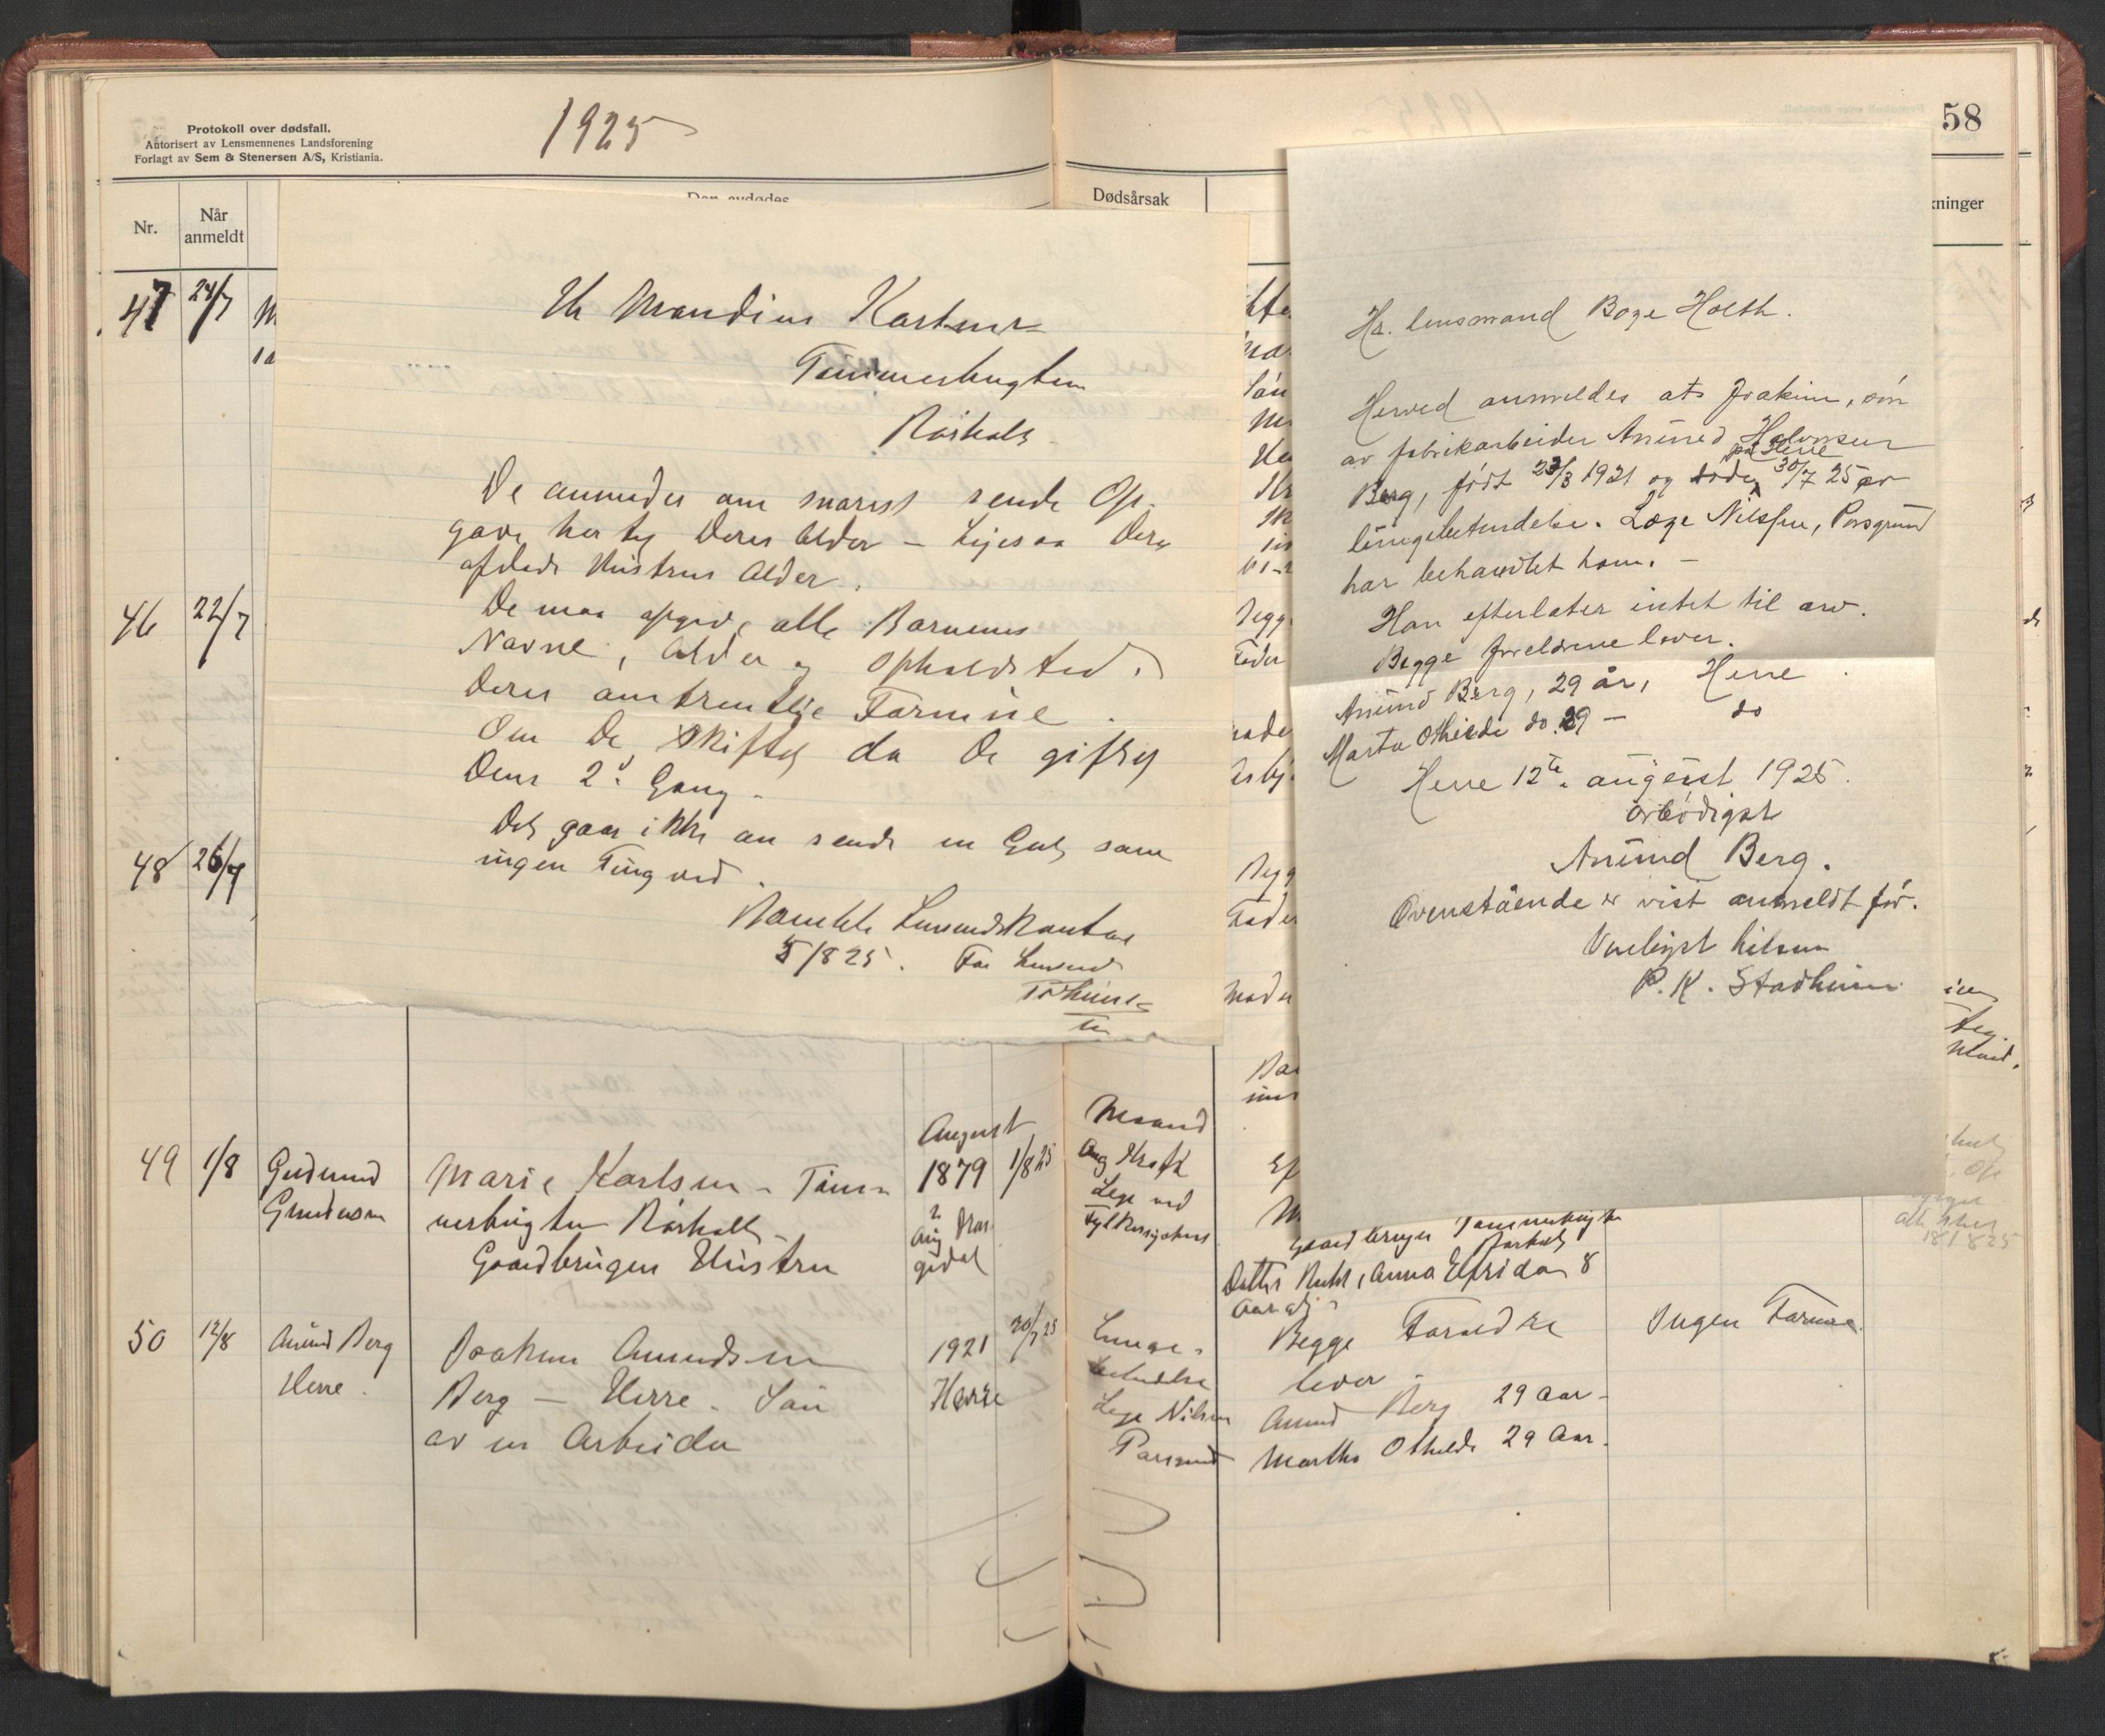 Protokoll over dødsfall.
Autorisert av Lensmennenes Landsforening
Forlagt av Sem & Stenersen A/S, Kristiania.
1925
58
Nr.
Når
anmeldt
Den avdødes
Dødsårsak
kninger
47 24/7
46 22/7
48 26/7
Hr Mandius Karlsen
Tømmerbugten
Rørholt
De anmodes om snarest sende Op-
gave her til Deres Alder - Ligesaa Deres
afdøde Hustrus Alder.
De maa opgive alle Barnenes
Navne, Alder og Opholdsted.
Deres omtrentlige Formue.
Om De skiftet da De giftet
Dem 2d Gang.
Det gaar ikke an sende en Gut som
ingen Ting ved.
Bamble Lensmdskontor
5/8 25. For Lensmd
Hr. lensmand Boye Holth.
Herved anmeldes at Joakim, søn
av fabrikarbeider Anund Halvorsen
Berg, født 23/3 1921 og døde på Herre 30/7 25 av
lungebetendelse. Læge Nilssen, Porsgrund
har behandlet ham. -
Han efterlater intet til arv.
Begge foreldrene lever.
Anund Berg, 29 år, Herre
Marta Othilde do. 29 - do
Herre 12te august 1925.
ærbødigst
Anund Berg.
Ovenstående er vist anmeldt før.
Venligst hilsen
P. K. Stadheim
49 1/8 Gudmund
Gundersen
Marie Karlsen - Tøm-
merbugten Rørholt
Gaardbruger Hustru
August
1879 1/8 25
Mand
Lege ved
Gaardbruger Tømmerbugten
Rørholt
Datter Ruth, Anna Elfrida 8
Aar
50 12/8 Anund Berg
Herre.
Joakim Amundsen
Berg - Herre. Søn
av en Arbeider
1921 30/7 25
Herre
Lunge-
betendelse
Lege Nilsen
Porsgrund
Begge Foreldre
lever
Anund Berg 29 Aar -
Martha Othilde 29 Aar.
Ingen Formue.
18/8 25